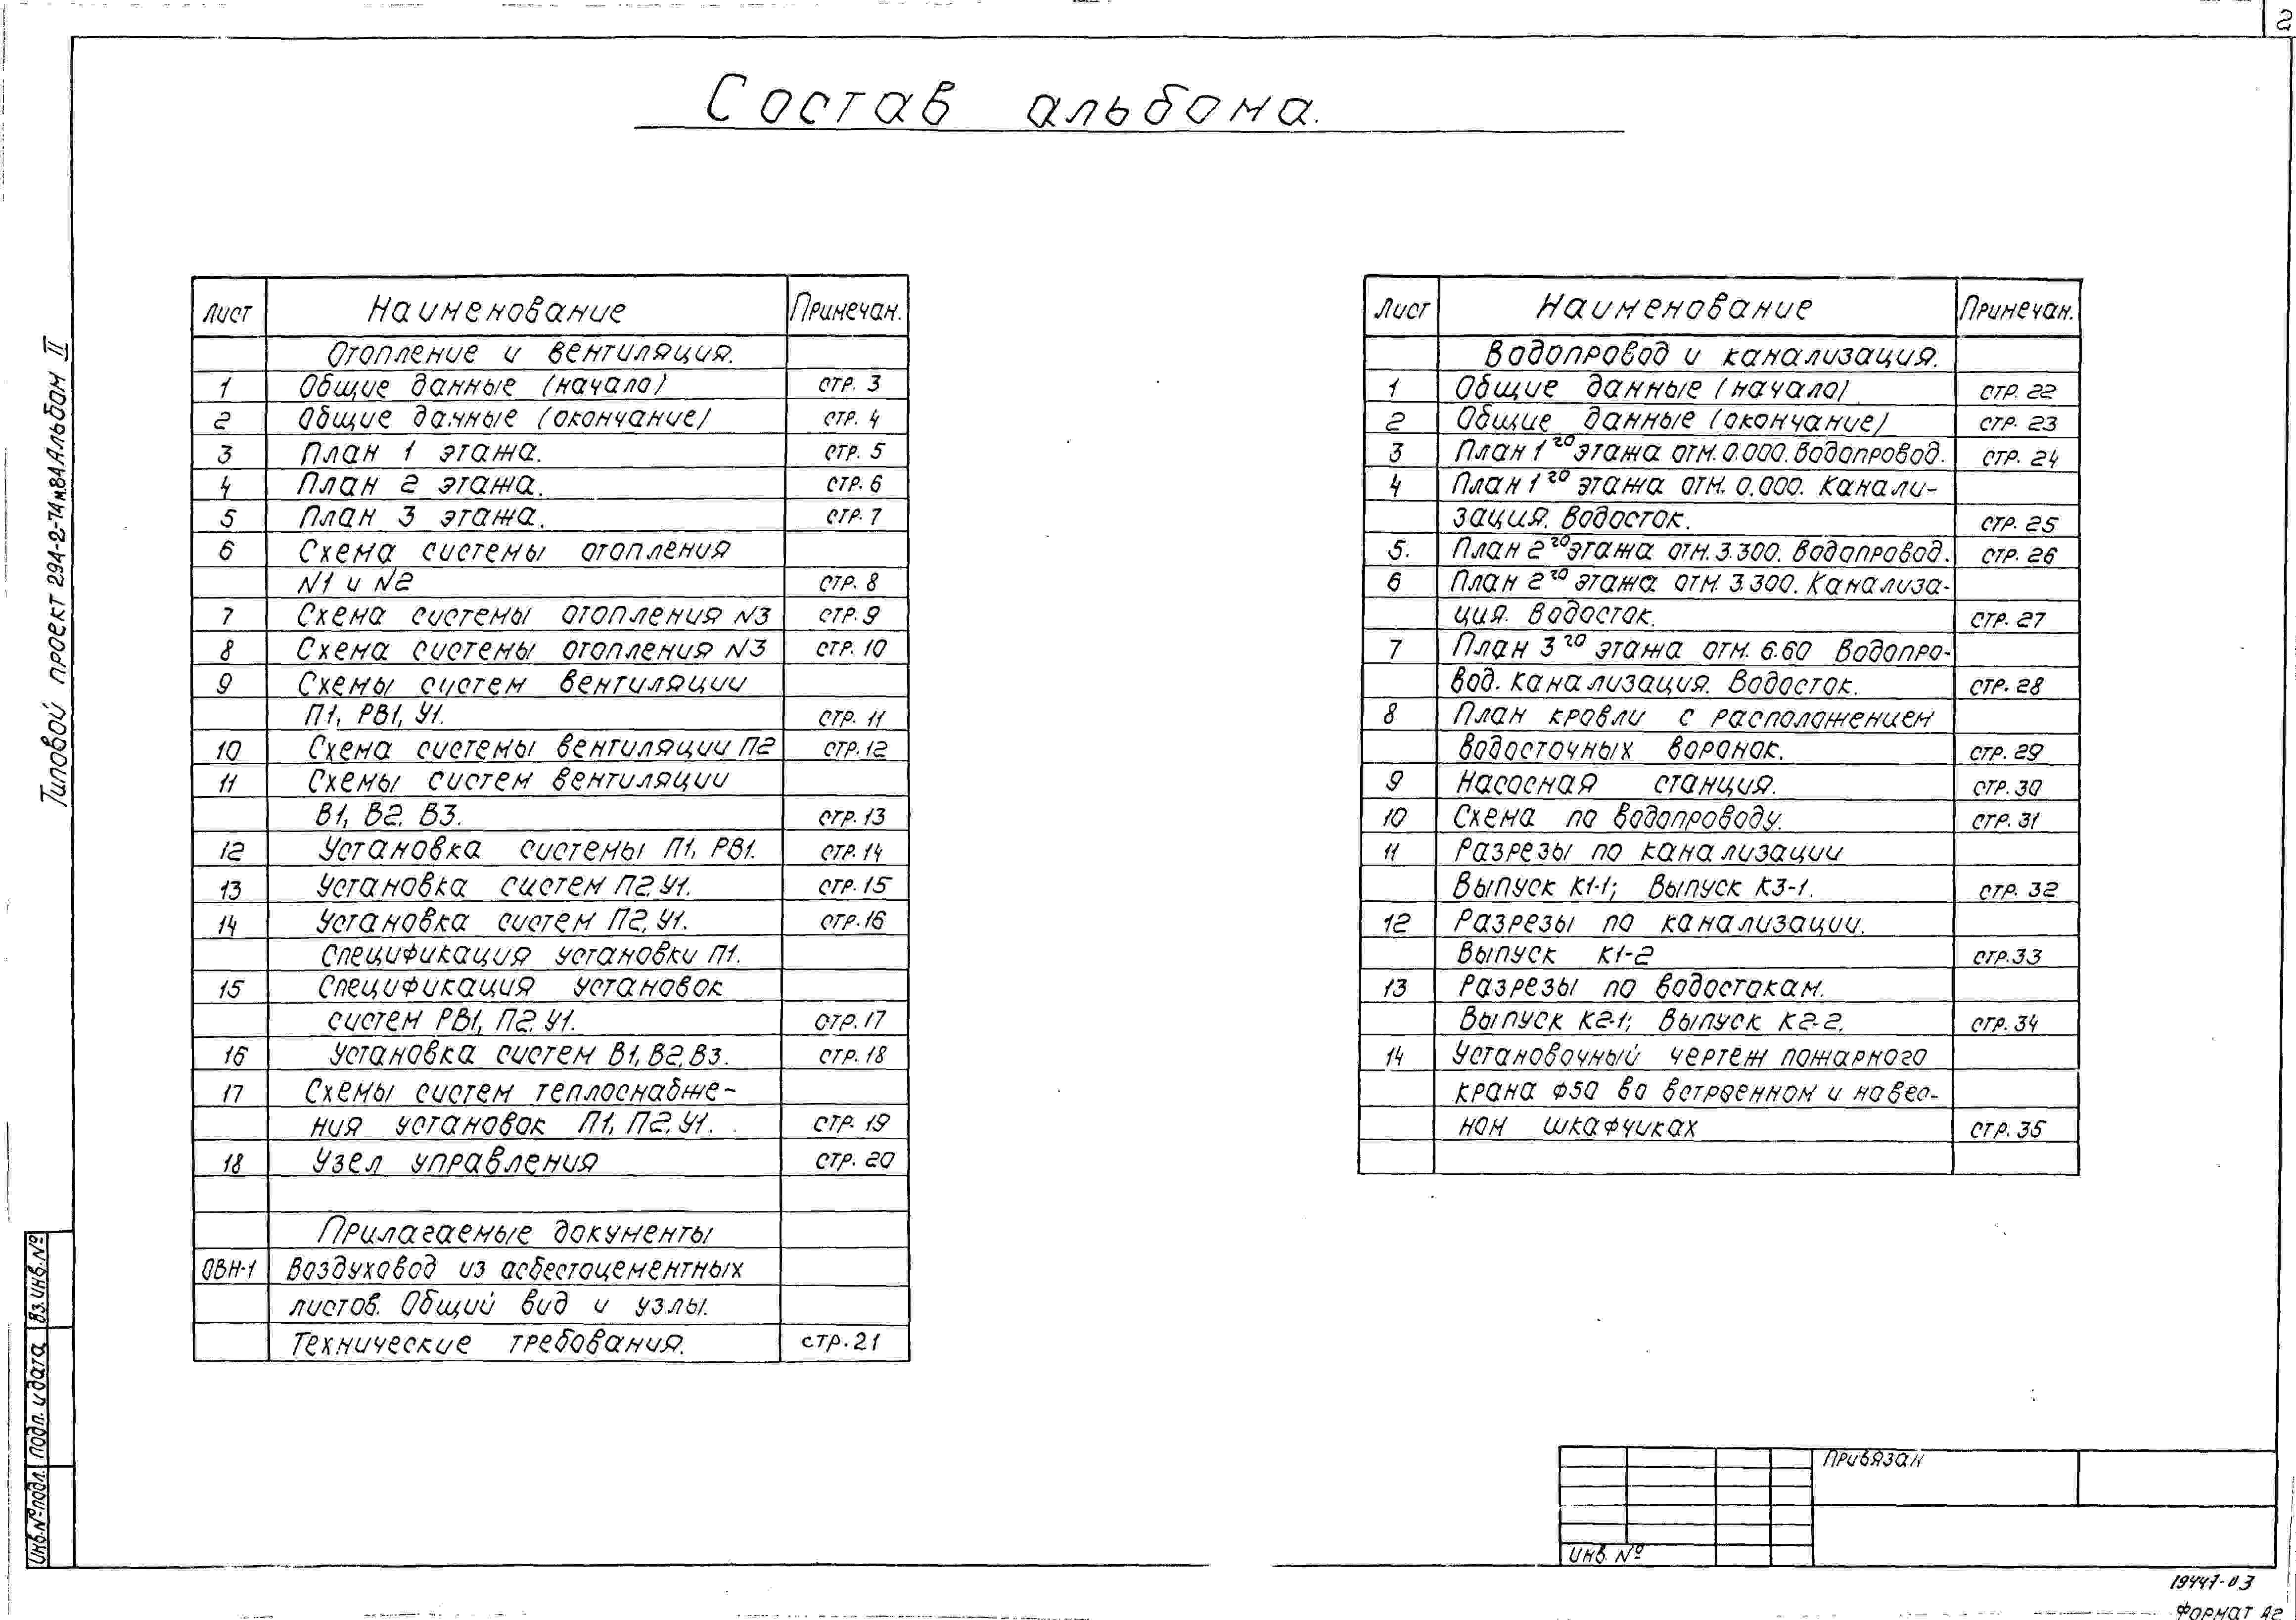 2
Состав альбома.
Типовой проект 294-2-74м.84 Альбом II
Лист Наименование Примечан.
Отопление и вентиляция.
1 Общие данные (начало) стр. 3
2 Общие данные (окончание) стр. 4
3 План 1 этажа. стр. 5
4 План 2 этажа. стр. 6
5 План 3 этажа. стр. 7
6 Схема системы отопления
N1 и N2 стр. 8
7 Схема системы отопления N3 стр. 9
8 Схема системы отопления N3 стр. 10
9 Схемы систем вентиляции
П1, РВ1, У1. стр. 11
10 Схема системы вентиляции П2 стр. 12
11 Схемы систем вентиляции
В1, В2, В3. стр. 13
12 Установка системы П1, РВ1. стр. 14
13 Установка систем П2, У1. стр. 15
14 Установка систем П2, У1. стр. 16
Спецификация установки П1.
15 Спецификация установок
систем РВ1, П2, У1. стр. 17
16 Установка систем В1, В2, В3. стр. 18
17 Схемы систем теплоснабже-
ния установок П1, П2, У1. стр. 19
18 Узел управления стр. 20
Прилагаемые документы
ОВН-1 Воздуховод из асбестоцементных
листов. Общий вид и узлы.
Технические требования. стр. 21
Лист Наименование Примечан.
Водопровод и канализация.
1 Общие данные (начало) стр. 22
2 Общие данные (окончание) стр. 23
3 План 1го этажа отм. 0.000. Водопровод. стр. 24
4 План 1го этажа отм. 0.000. Канали-
зация. Водосток. стр. 25
5. План 2го этажа отм. 3.300. Водопровод. стр. 26
6 План 2го этажа отм. 3.300. Канализа-
ция. Водосток. стр. 27
7 План 3го этажа отм. 6.60 Водопро-
вод. Канализация. Водосток. стр. 28
8 План кровли с расположением
водосточных воронок. стр. 29
9 Насосная станция. стр. 30
10 Схема по водопроводу. стр. 31
11 Разрезы по канализации
Выпуск К1-1; Выпуск К3-1. стр. 32
12 Разрезы по канализации.
Выпуск К1-2 стр. 33
13 Разрезы по водостокам.
Выпуск К2-1; Выпуск К2-2. стр. 34
14 Установочный чертеж пожарного
крана ф50 во встроенном и навес-
ном шкафчиках стр. 35
Инв. № подл. Подп. и дата Вз. инв. №
Привязан
Инв. №
19447-03
Формат А2